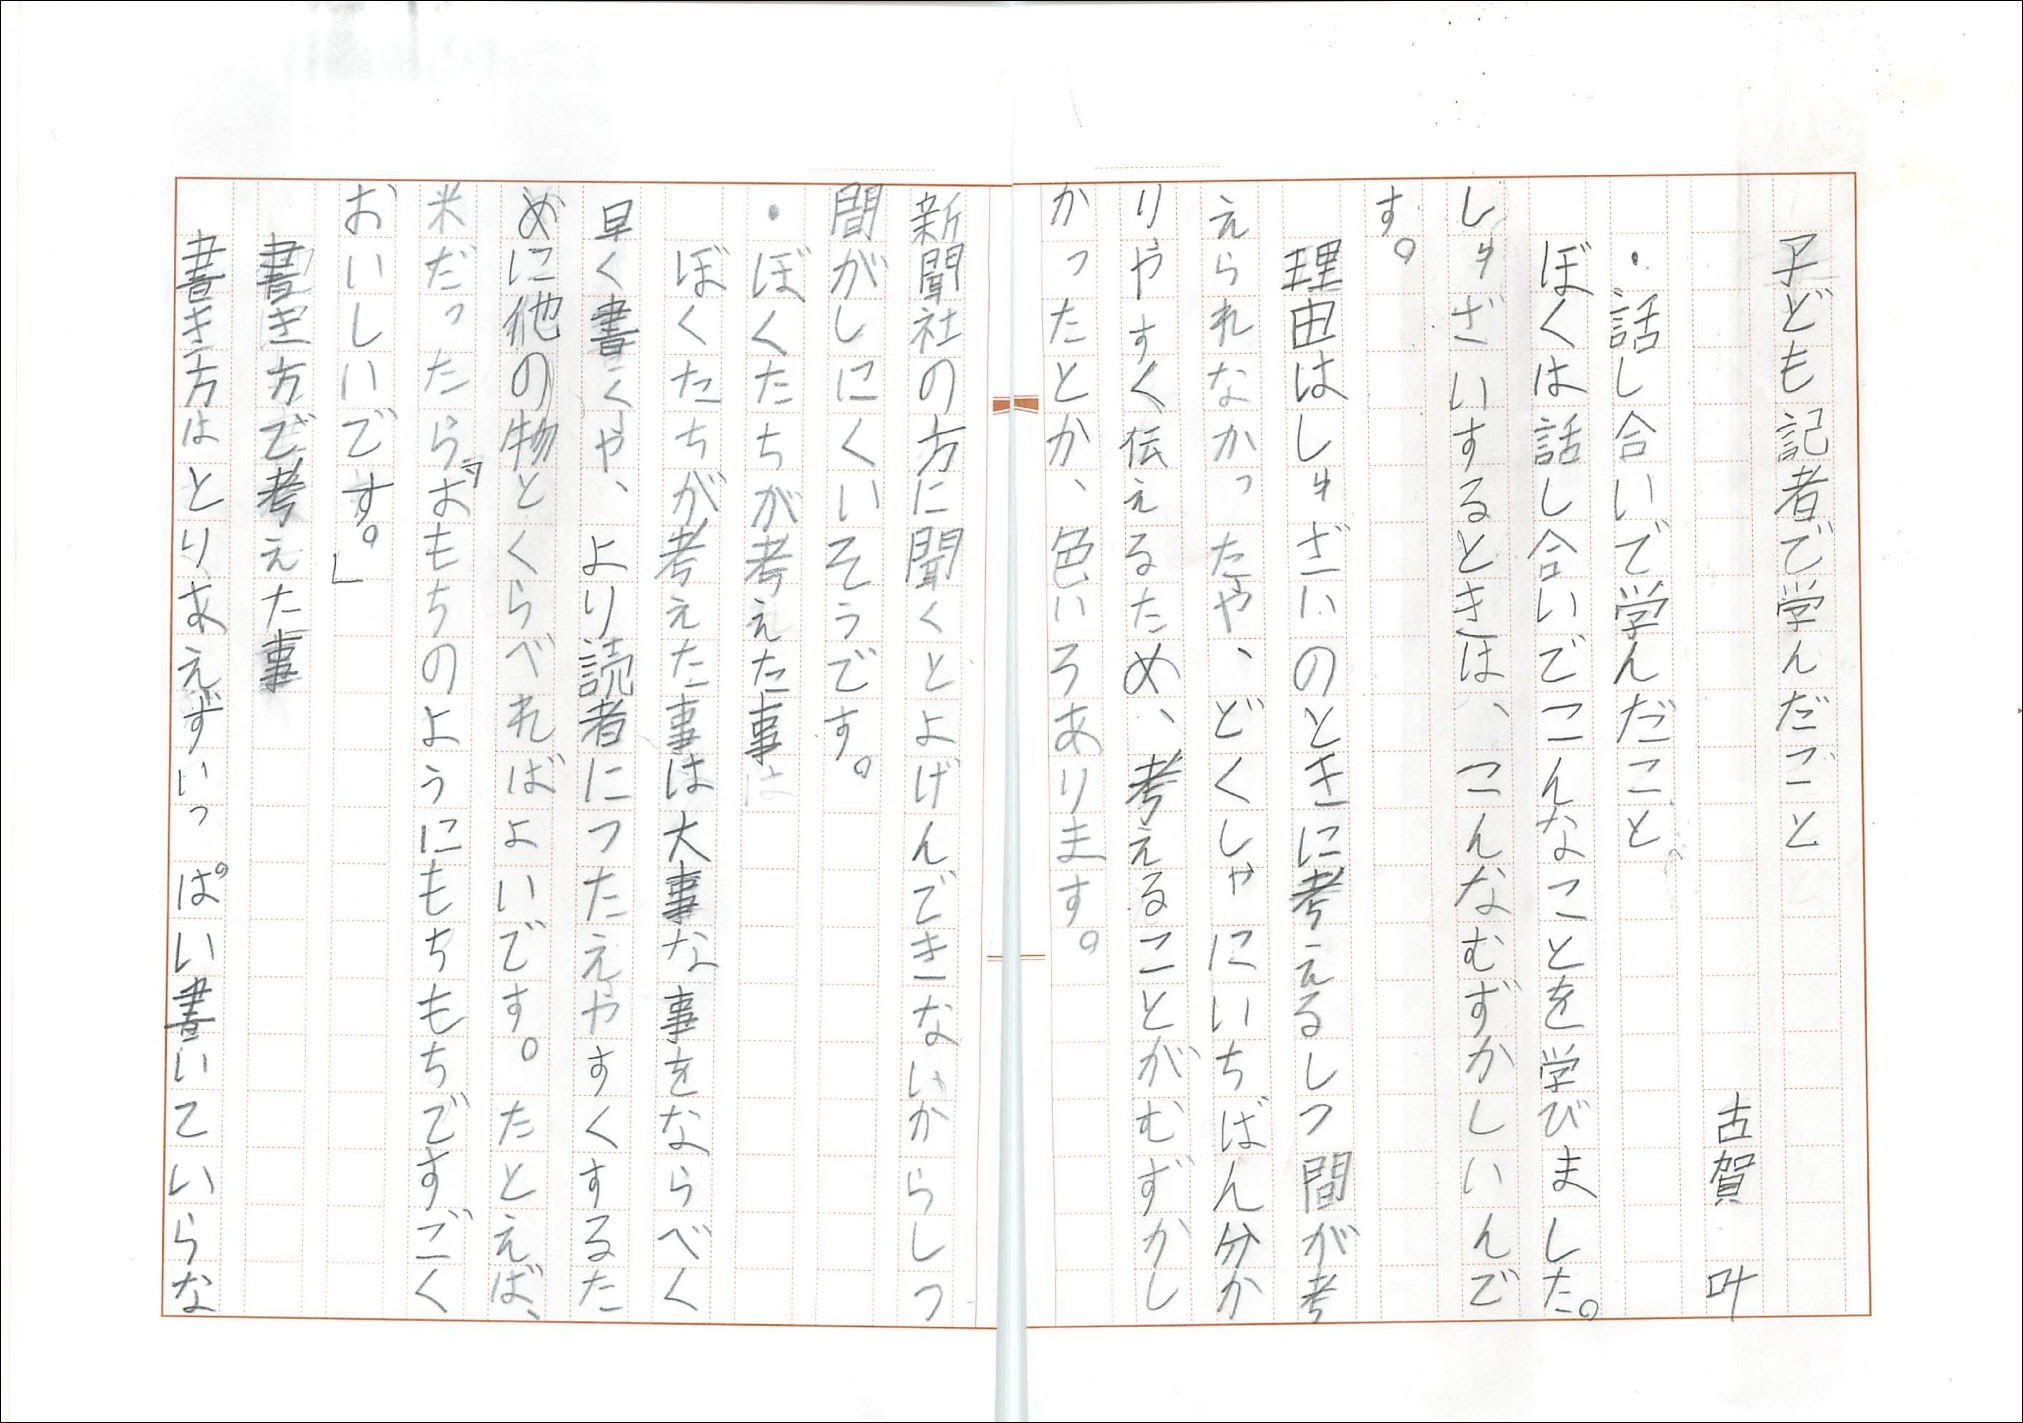 子ども記者で学んだこと
古賀 叶
・話し合いで学んだこと
ぼくは話し合いでこんなことを学びました。
しゅざいするときは、こんなむずかしいんで
す。
理由はしゅざいのときに考えるしつ間が考
えられなかったや、どくしゃにいちばん分か
りやすく伝えるため、考えることがむずかし
かったとか、色いろあります。
新聞社の方に聞くとよげんできないからしつ
間がしにくいそうです。
・ぼくたちが考えた事
ぼくたちが考えた事は大事な事をならべく
早く書くや、より読者につたえやすくするた
めに他の物とくらべればよいです。たとえば、
米だったら『おもちのようにもちもちですごく
おいしいです。」
書き方で考えた事
書き方はとりあえずいっぱい書いていらな